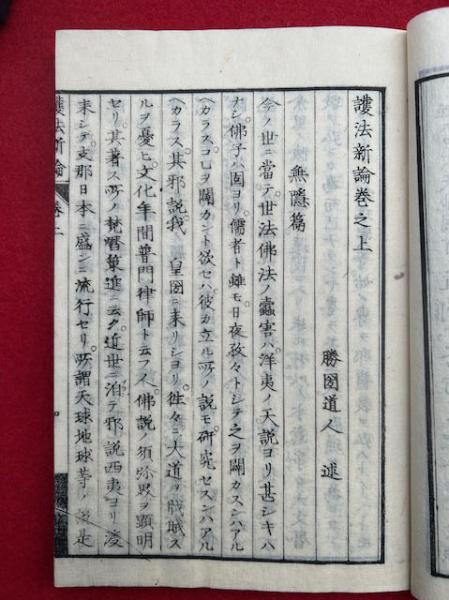 護法新論巻之上
勝国道人 述
無隠篇
今ノ世ニ當テ世法佛法ノ蠹害ハ洋夷ノ天説ヨリ甚シキハ
ナシ佛子ハ固ヨリ儒者ト雖モ日夜孜々トシテ之ヲ闢カスンハアル
ヘカラスコレヲ闢カント欲セハ彼カ立ル所ノ説モ研究セスンハアル
ヘカラス其邪説我 皇國ニ来リシヨリ徃々ニ大道ヲ戕賊ス
ルヲ憂ヒ文化年間普門律師ト云フ人佛説ノ須弥界ヲ顕明
セリ其著ス所ノ梵暦策進ニ云ク近世ニ泊テ邪説西夷ヨリ浸
来シテ支那日本ニ盛ンニ流行セリ所謂天球地球等ノ説是
護法新論 巻上